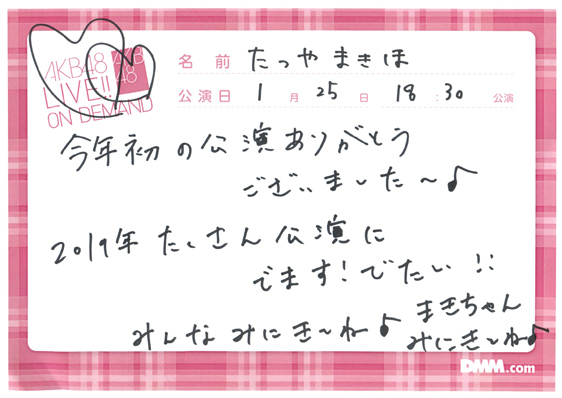 AKB48
LIVE!!
ON DEMAND
AKB
48
名前 たつや まきほ
公演日 1月25日 18:30 公演
今年初の公演ありがとう
ございました〜♪
2019年 たくさん公演に
でます!でたい!!
みんなみにき〜ね♪
まきちゃん
みにき〜ね♪
DMM.com